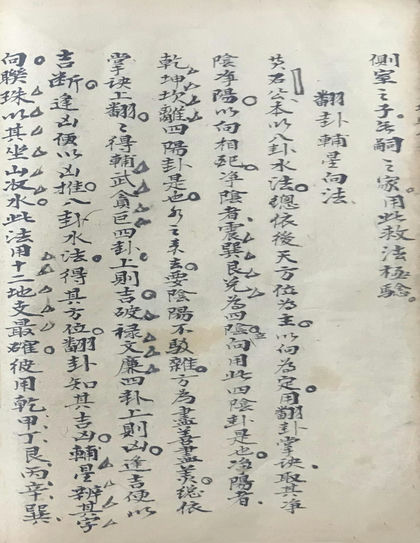 側室之子。乏嗣之家。用此救法極驗
翻卦輔星向法
黃石公本以八卦水法。總依後天方位為主。以向為定。用翻卦掌訣。取其淨
陰淨陽。以向相配。淨陰者。震巽艮兌為四陰向。用此四陰卦是也。淨陽者。
乾坤坎離四陽卦是也。水之來去。要陰陽不駁雜。方為盡善盡美。總依
掌訣上翻。翻得輔武貪巨四卦上則吉。破祿文廉四卦上則凶。逢吉便以
吉斷。逢凶便以凶推。八卦水法。得其方位。翻卦知其吉凶。輔星辨其字
向聯珠。以其坐山收水。此法用十二地支最確。彼用乾甲丁艮丙辛巽